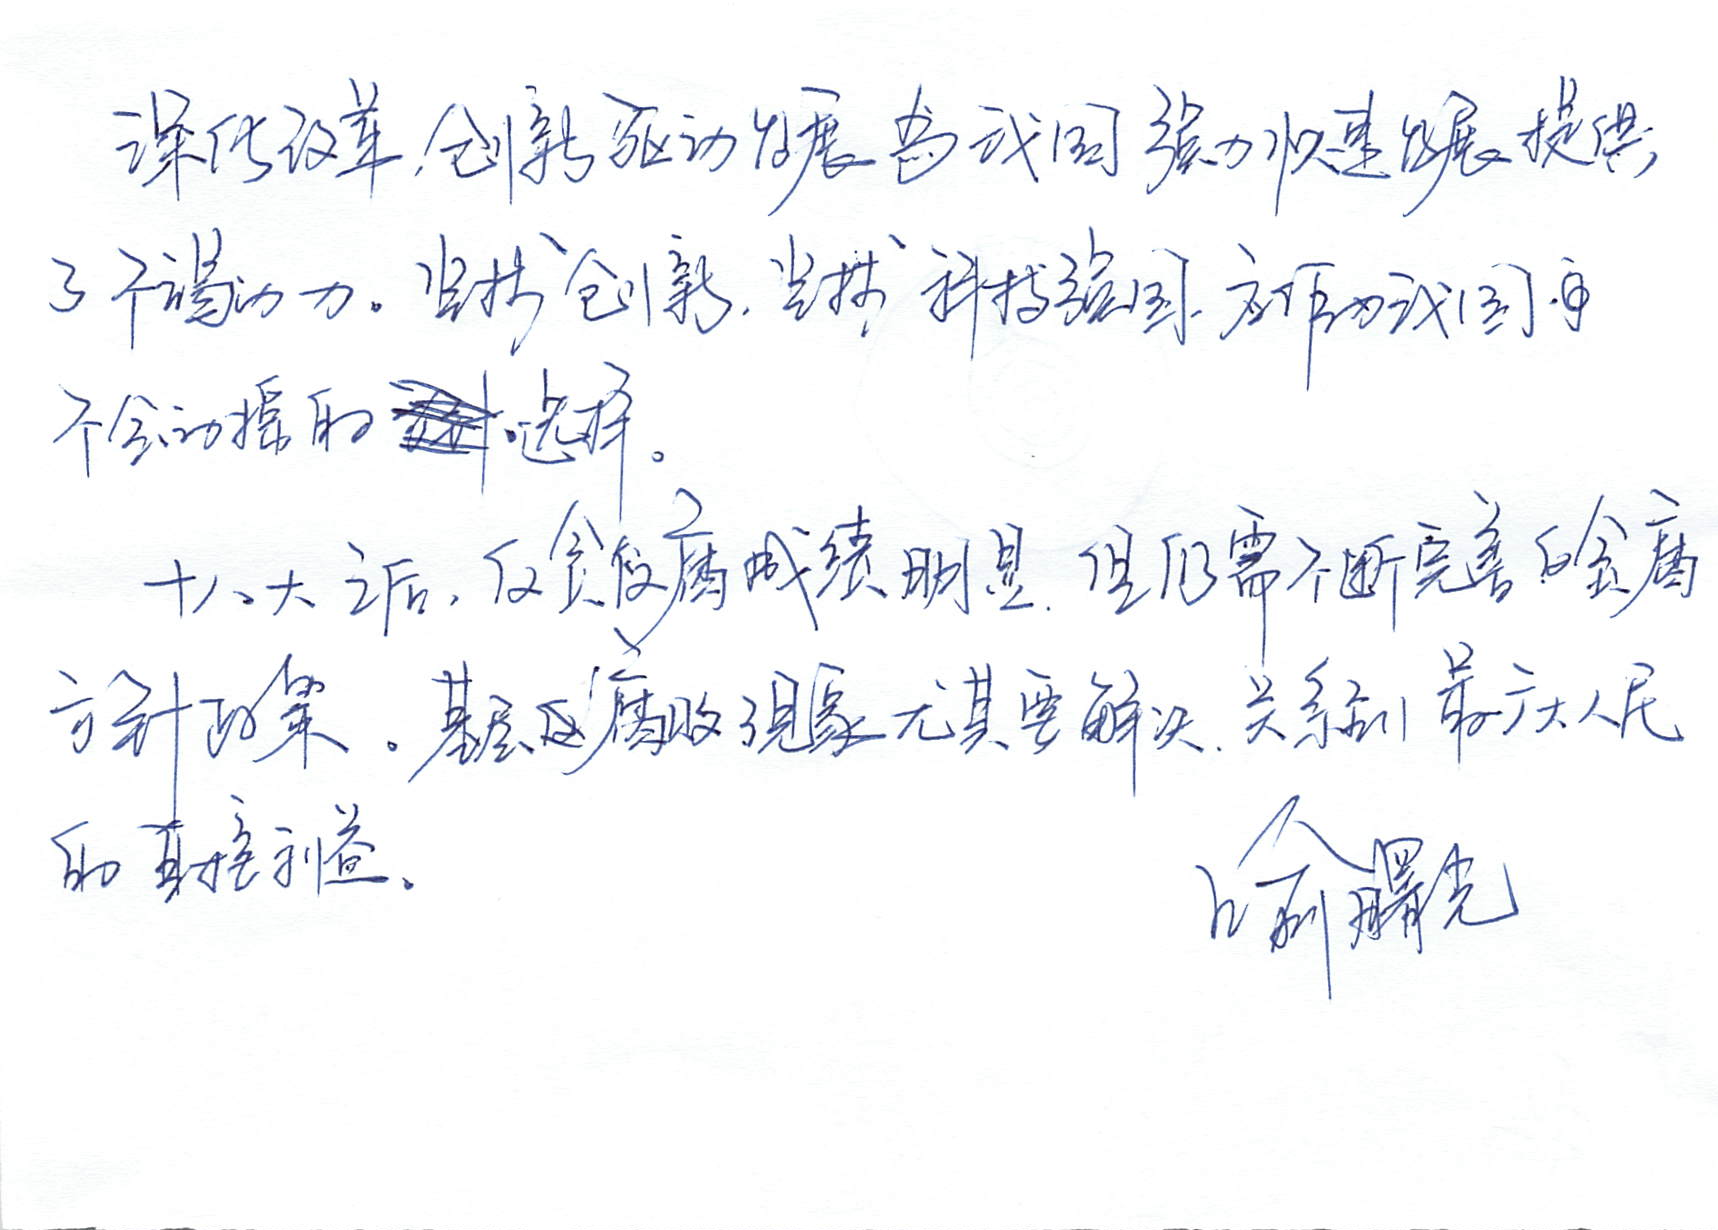 深化改革，创新驱动发展为我国强力快速发展提供
了不竭动力。坚持创新，坚持科技强国，应作为我国
不会动摇的选择。
十八大之后，反贪反腐成绩明显，但仍需不断完善反贪腐
方针政策。基层反腐败现象尤其要解决，关系到最广大人民
的直接利益。
喻曙光